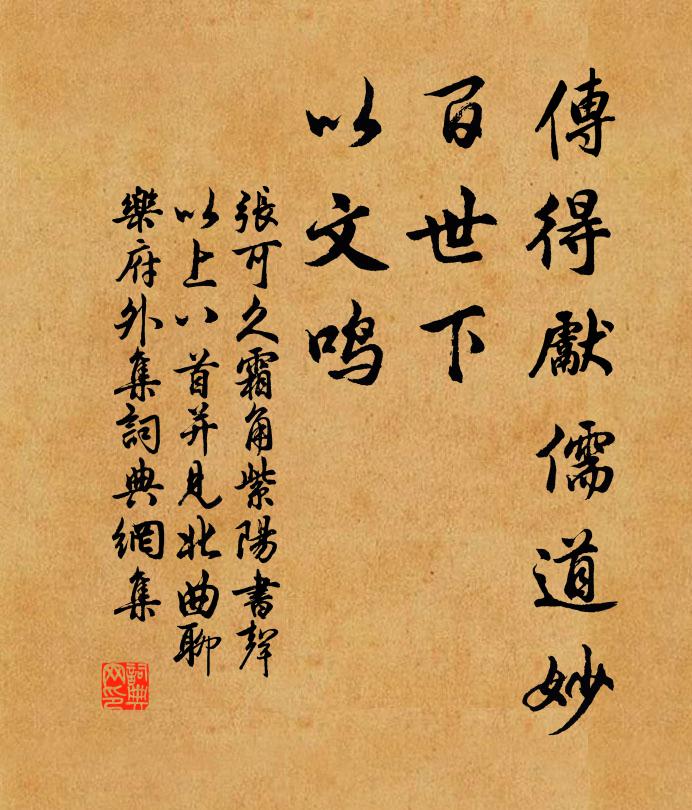 傳得獻儒道妙
百世下
以文鳴
張可久霜角紫陽書聲
以上八首并見北曲聊
樂府外集詞典網集
詞典網印